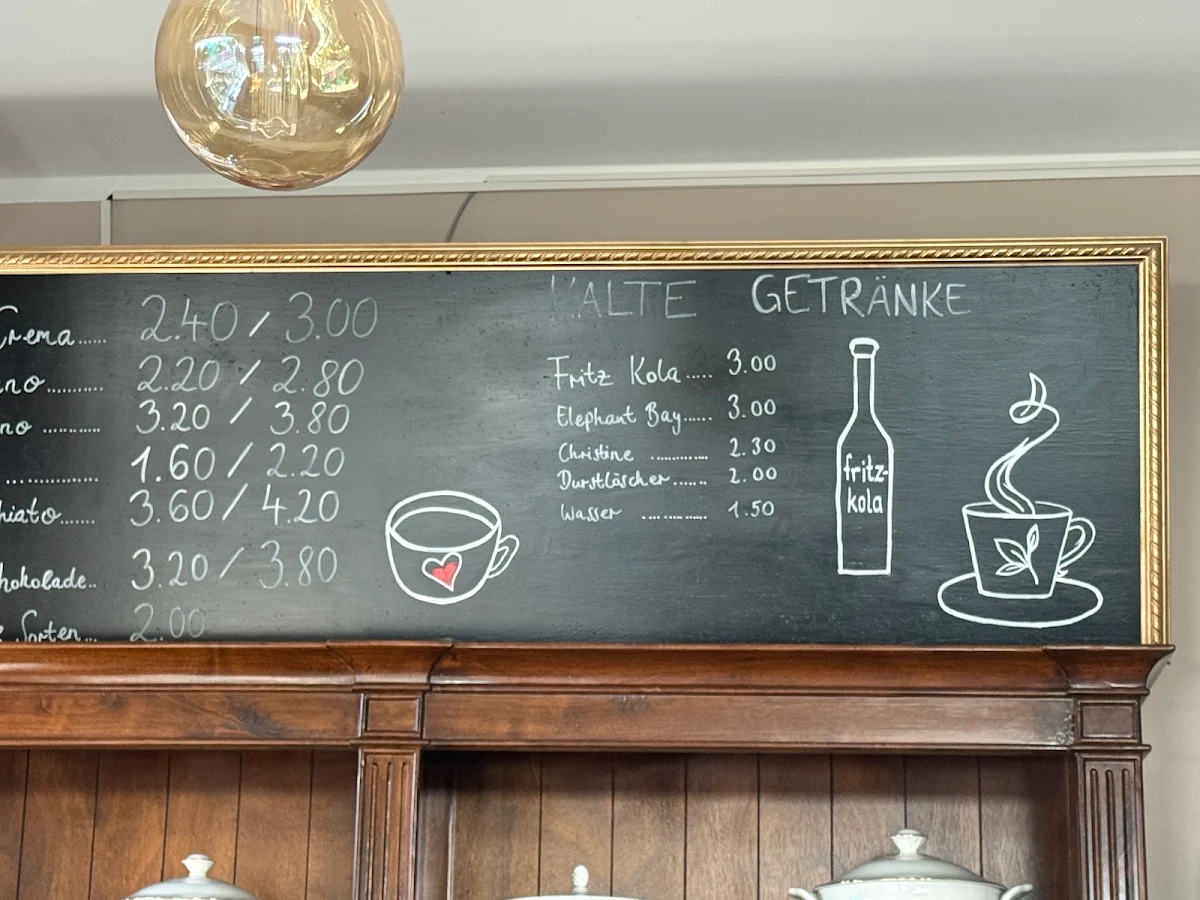 Crema...... 2.40 / 3.00
no.......... 2.20 / 2.80
no ........... 3.20 / 3.80
.............. 1.60 / 2.20
hiato....... 3.60 / 4.20
hokolade.. 3.20 / 3.80
Sorten... 2.00
KALTE GETRÄNKE
Fritz Kola..... 3.00
Elephant Bay...... 3.00
Christine ............ 2.30
Durstlöscher....... 2.00
Wasser ............ 1.50
fritz-
kola